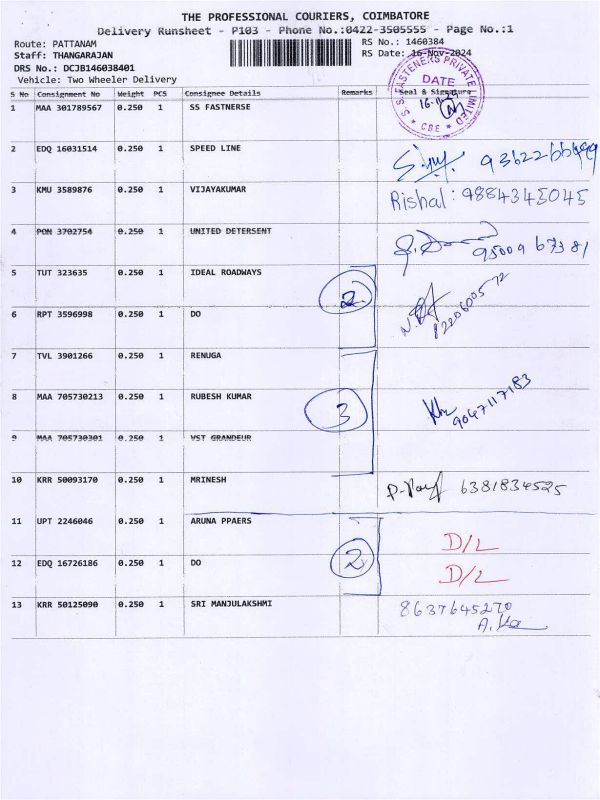 THE PROFESSIONAL COURIERS, COIMBATORE
Delivery Runsheet - P103 - Phone No.:0422-3505555 - Page No.:1
Route: PATTANAM
Staff: THANGARAJAN
DRS No.: DCJB146038401
Vehicle: Two Wheeler Delivery
RS No.: 1460384
RS Date: 16-Nov-2024
S No Consignment No Weight PCS Consignee Details Remarks Seal & Signature
1 MAA 301789567 0.250 1 SS FASTNERSE
S.S. FASTENERS PRIVATE LIMITED
DATE
CBE
2 EDQ 16031514 0.250 1 SPEED LINE
3 KMU 3589876 0.250 1 VIJAYAKUMAR Rishal: 9884345045
4 PON 3702754 0.250 1 UNITED DETERSENT 95009 67381
5 TUT 323635 0.250 1 IDEAL ROADWAYS
2
6 RPT 3596998 0.250 1 DO
7 TVL 3901266 0.250 1 RENUGA
8 MAA 705730213 0.250 1 RUBESH KUMAR 3 9047117183
9 MAA 705730301 0.250 1 VST GRANDEUR
10 KRR 50093170 0.250 1 MRINESH 6381834525
11 UPT 2246046 0.250 1 ARUNA PPAERS D/L
12 EDQ 16726186 0.250 1 DO 2 D/L
13 KRR 50125090 0.250 1 SRI MANJULAKSHMI 8637645270